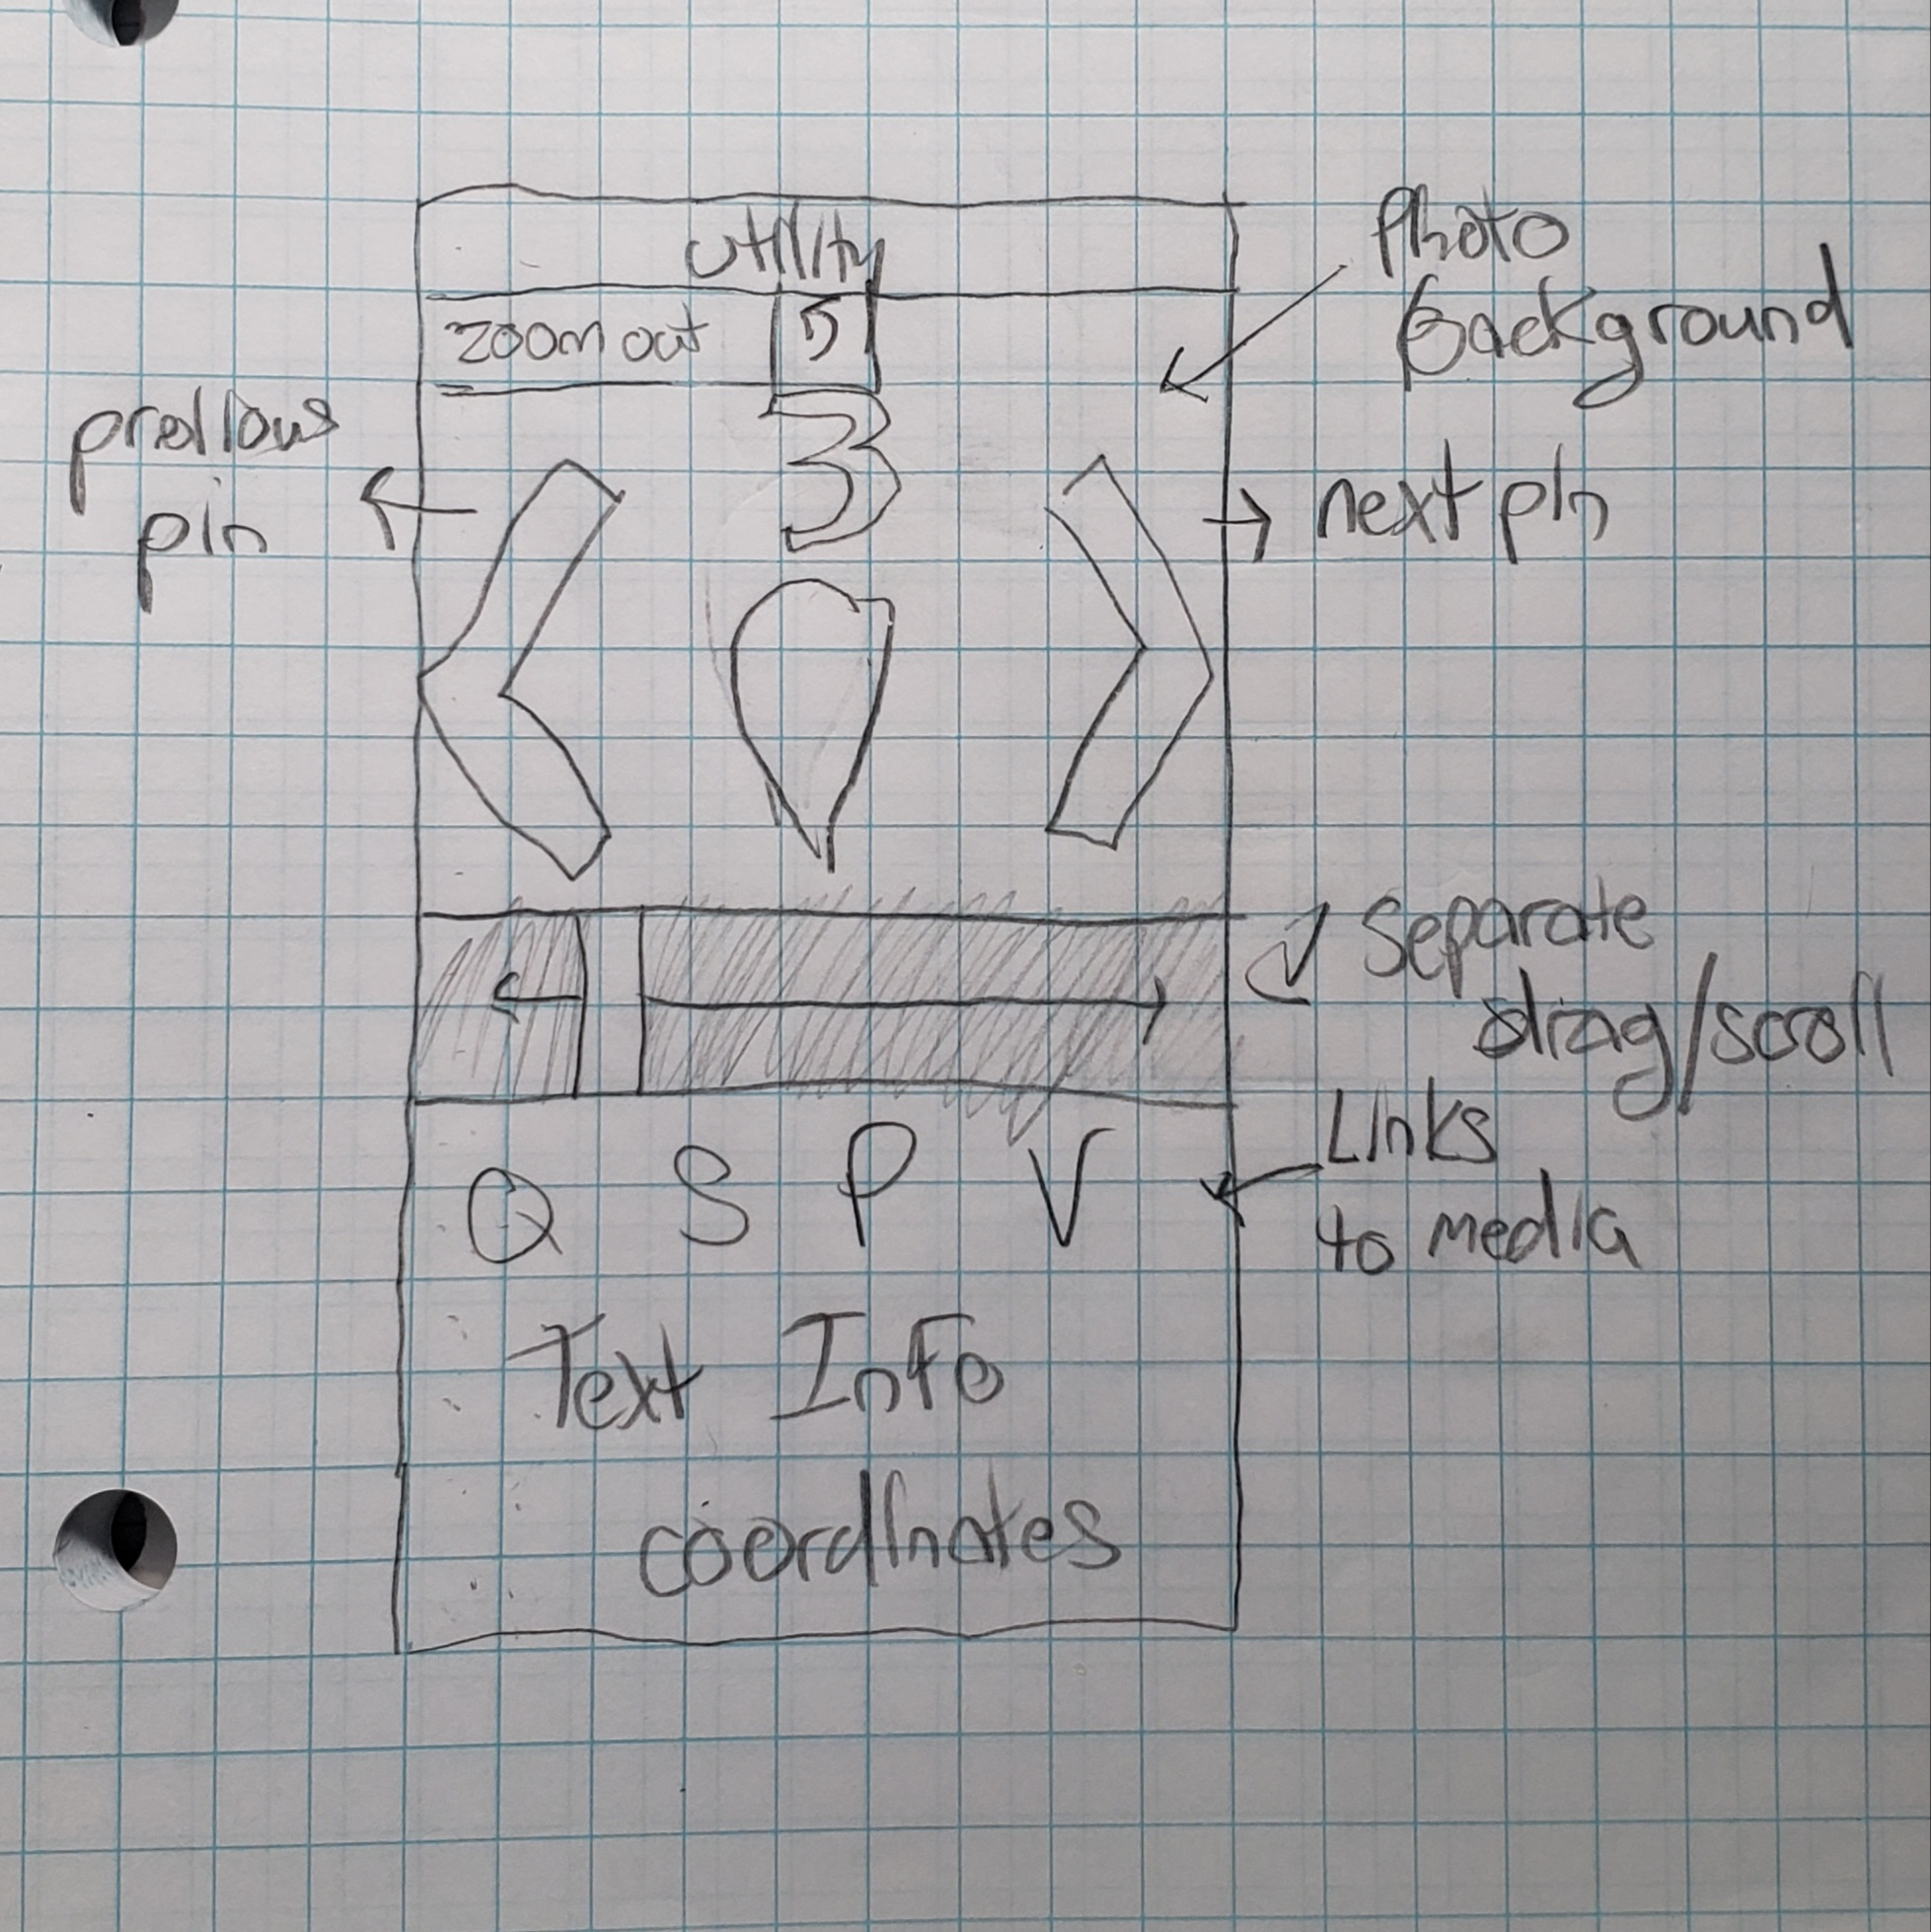 utility
Photo
Background
zoom out
5
3
previous
pin
next pin
Separate
drag/scroll
Links
to media
Q S P V
Text Info
coordinates